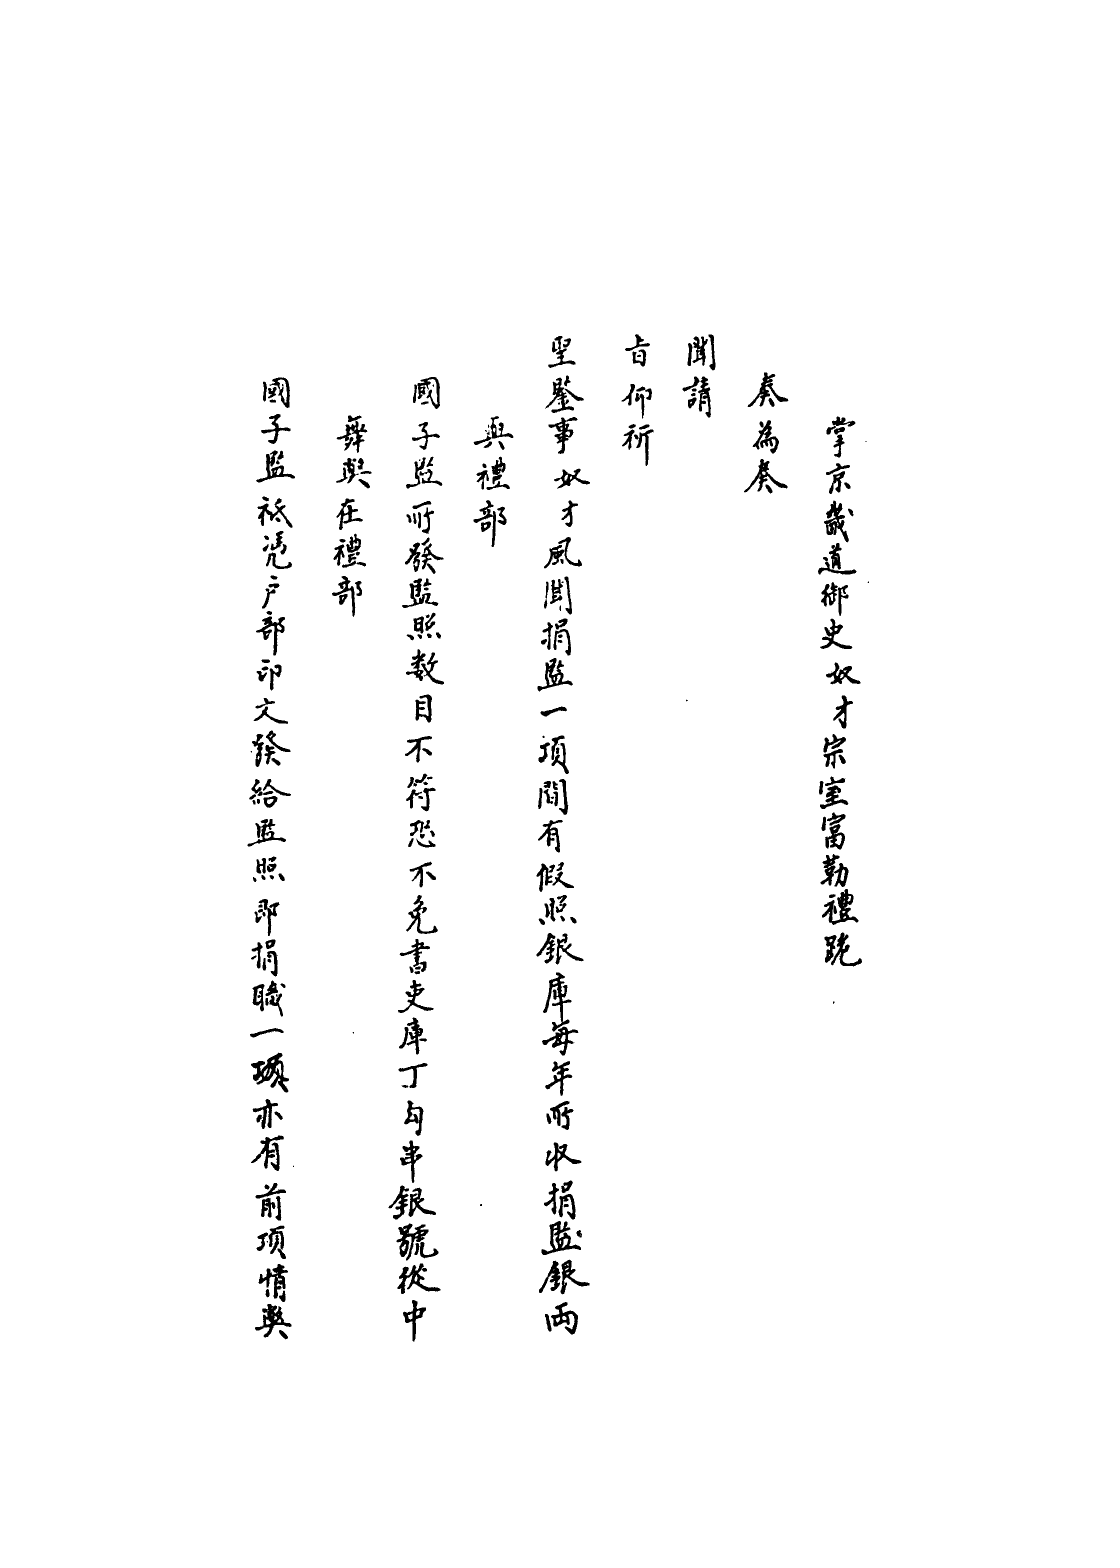 掌京畿道御史奴才宗室富勒禮跪
奏為奏
聞請
旨仰祈
聖鑒事奴才風聞捐監一項間有假照銀庫每年所收捐監銀兩
與禮部
國子監所發監照數目不符恐不免書吏庫丁勾串銀號從中
舞弊在禮部
國子監祗憑户部印文發給監照即捐職一項亦有前項情弊